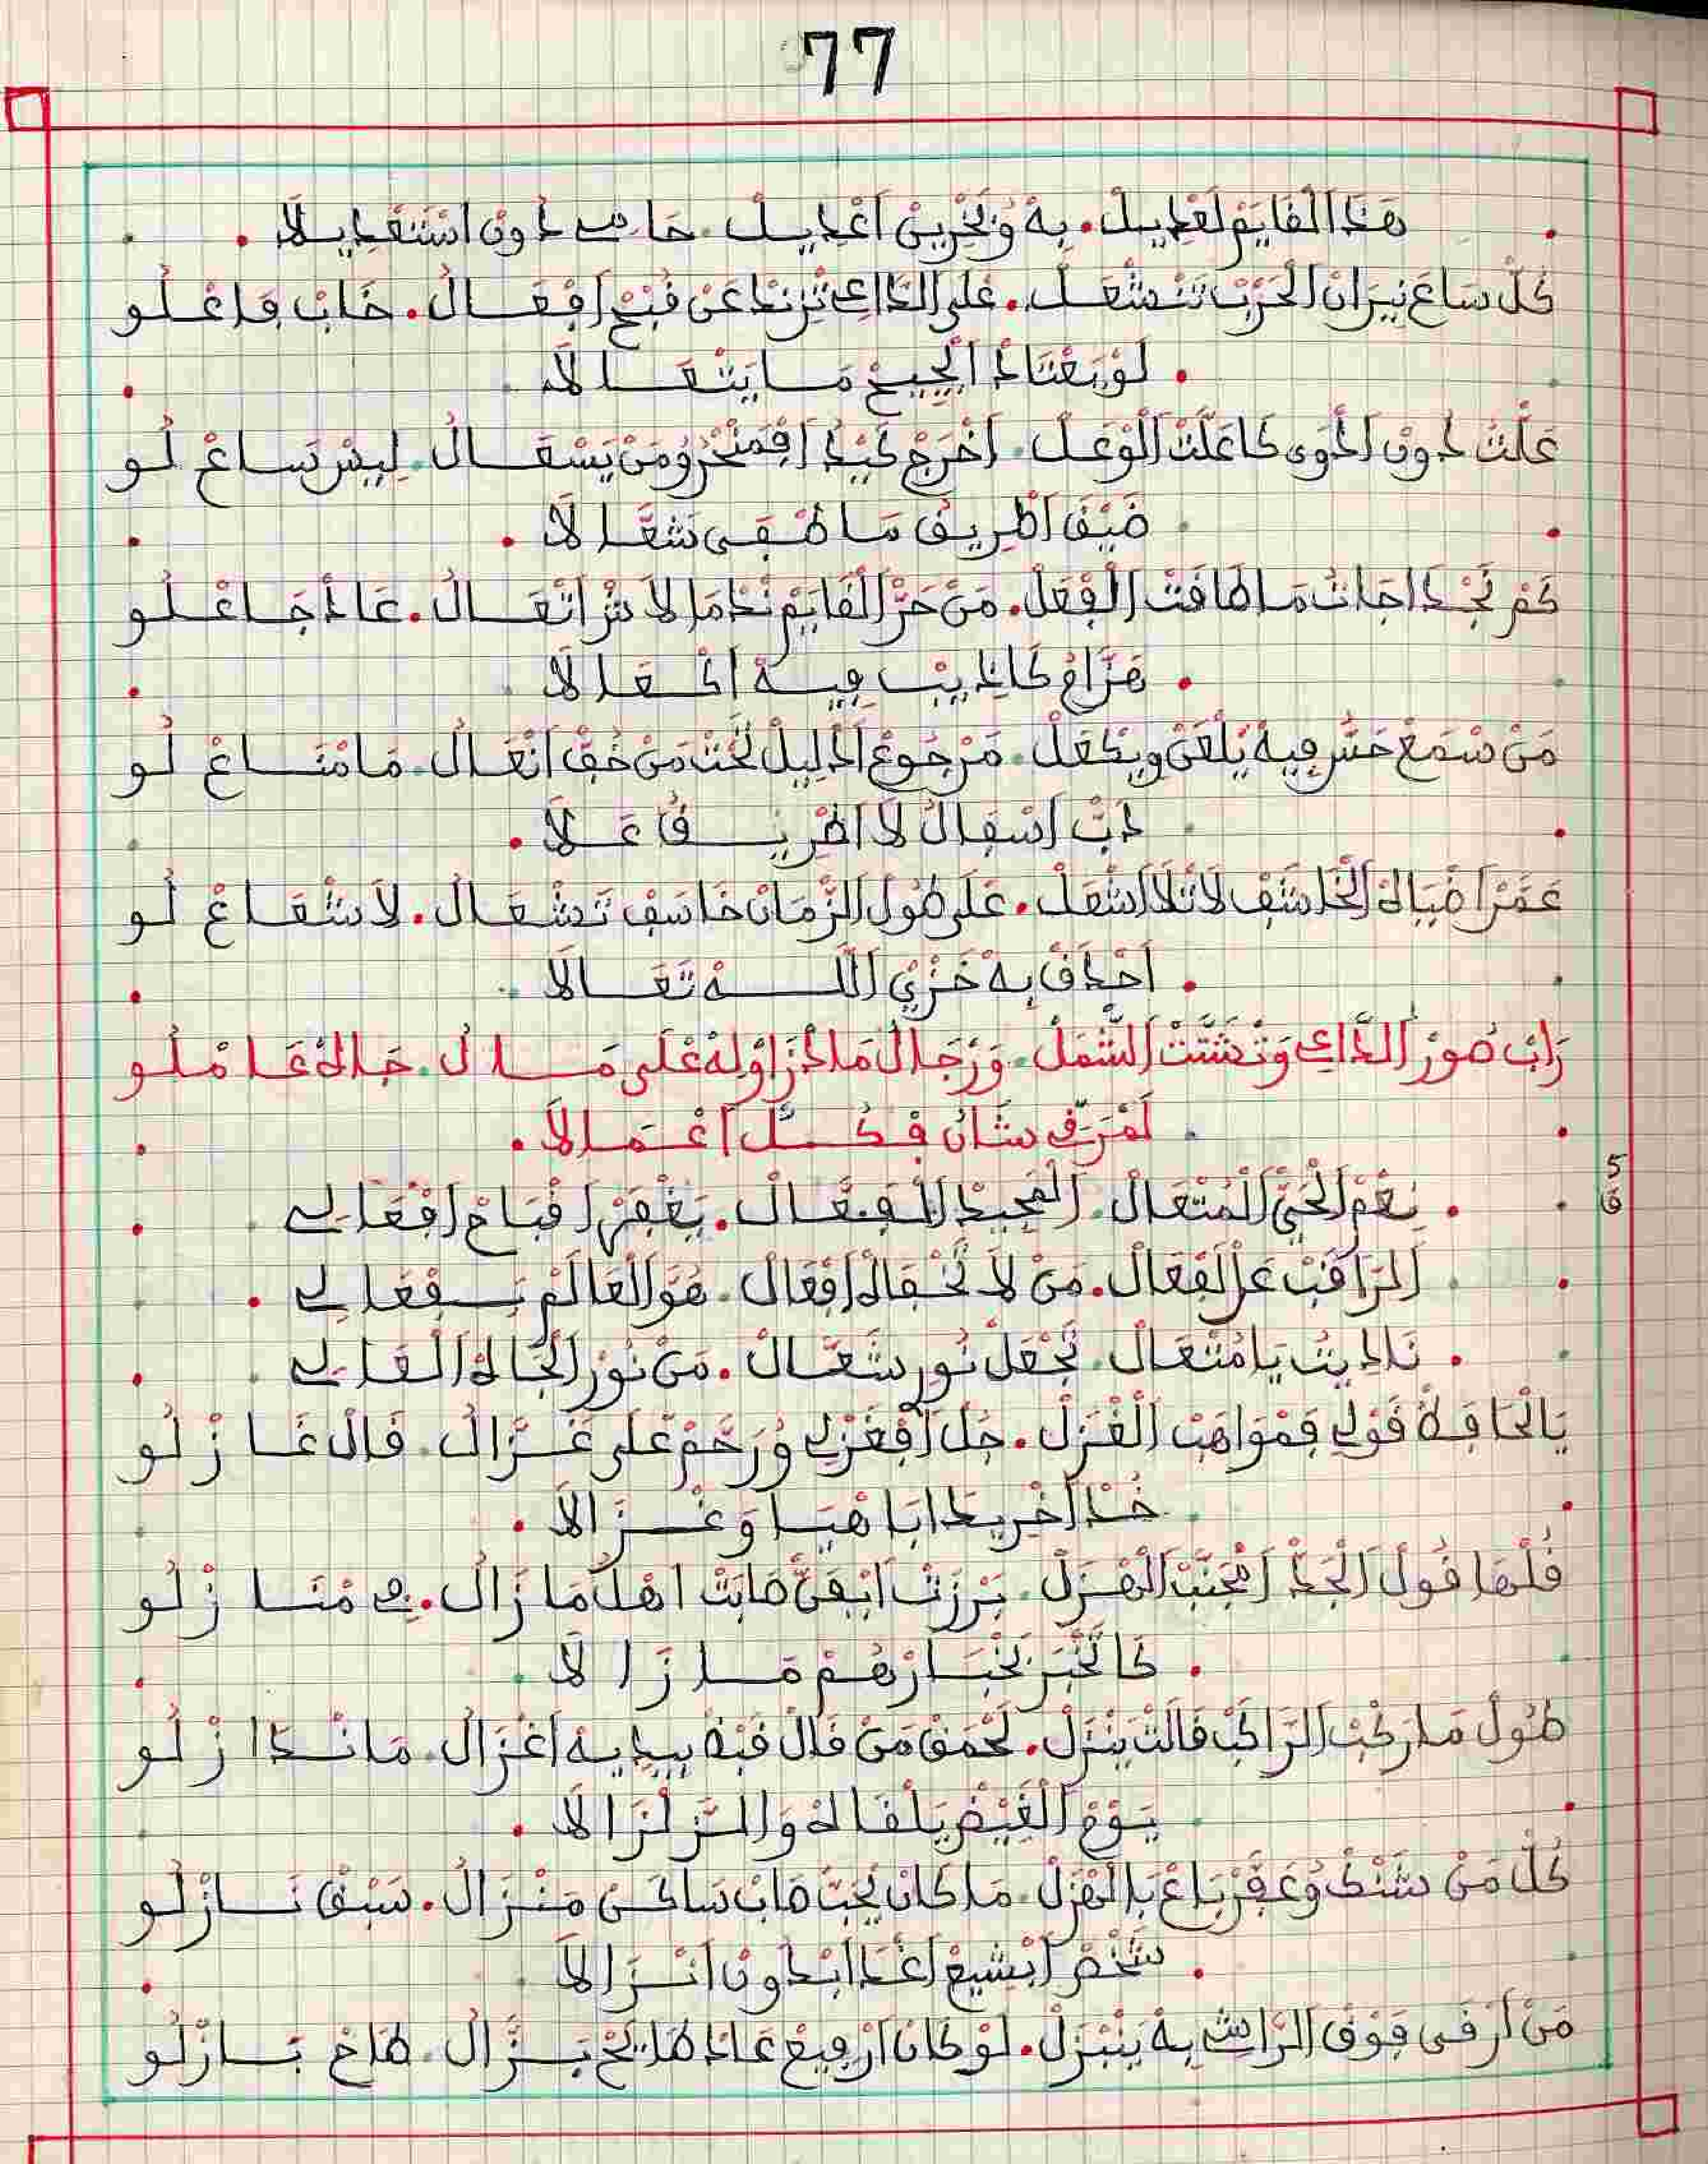 77
هَذَا الْقَايَمْ لَعْدِيلْ. بِهْ وُنَجْرِيبْ اَعْدِيلْ. حَاضي دُونْ اسْتَعْدِيلَا.
كُلّ سَاعَ نِيرَانْ الْحَرْبْ تَنْشْعَلْ. عْلَى الدَّاعِي تْزِنَدْ عَنْ قُبْحْ اَفْعَالُ. خَابْ فَاعْلُو
. لَوْ يَعْتَادْ الْجِيحْ مَا يَتْعَالَا
عَلَّتْ دُونْ الدْوَى كَاعَلَّتْ الْوْعَلْ. اَخْرَجْ كَبْدُ اَفْمَنْخْرُو مَنْ يَسْعَالُ. لِيسْ تَسَاعْ لُو
ضَيْقْ اَطْرِيقْ مَا طْفَى شَعَّالَا.
كَمْ نَجْدْ اجَاتْ مَا طَاقَتْ الْفْعَلْ. مَنْ حَرّ الْقَايَمْ نْدَمَا لَاشْ اتْعَالُ. عَادْ جَاعْلُو
. هَزَّاعْ كَالدِيبْ فِيهْ اَكْعَالَا
مَنْ سْمَعْ حَسّ فِيهْ يَلْعَنْ وِيكْعَلْ. مَرْجُوعْ الدْلِيلْ تَحْتْ مَنْ خُفّ انْعَالُ. مَا مْتَاعْ لُو
دَبّ اَسْفَالُ لَا اطْرِيقُ عَلَا.
عَمْرْ اَضْبَابْ الْخَاشَفْ لَا تْلَا اَشْعَلْ. عْلَى طُولْ الزْمَانْ خَاسَفْ تَشْعَالُ. لَا شْعَاعْ لُو
. اَحْدَقْ بِهْ خَزْيْ اللَّهْ تَعَالَا
رَابْ صُورْ الدَّاعِي وَتْشَتَّتْ الشّْمَلْ. وَرْجَالُ مَا دْرَاوْ لَهْ عْلَى مَالُ. جَالَهْ عَامْلُو
لَمْزَفّ شَانُ فْكُلّ اَعْمَالَا.
. نِعْمْ الْحَيّ الْمُتْعَالْ. الْمَجِيدْ الْفَعَّالْ. يَغْفَرْ اقْبَاحْ افْعَالِي
الْمْرَاقَبْ عَلْفْعَالْ. مَنْ لَا تَخْفَاهْ اَفْعَالْ. هُوَ الْعَالَمْ بَفْعَالِي.
. نَادِيتْ يَا مُتْعَالْ. تَجْعَلْ نُورِ شَعَّالْ. مَنْ نُورْ الْجَاهْ الْعَالِي
يَا الْحَافَظْ قَوْلِي فَمْوَاهَبْ الْغْزَلْ. جُلْ اَفْغَزْلِي وُرَحَّمْ عْلَى غَزَّالُ. قَالْ غَازْلُو
خُذْ اَخْرِيدَا ابَاهْيَا وَغْزَالَا.
قُلْهَا قُولْ الْجَدْ اَمْجَنَّبْ الْهْزَلْ. بَرْزَتْ اَبْفَنّ صَابَتْ اهْلُ مَا زَالُ. فِي مْنَازْلُو
. كَا تَخْبَرْ بَخْبَارْهُمْ مَا زَالَا
طُولْ مَا رْكَبْ الرَّاكَبْ قَالَتْ يَنْزَلْ. لَحْمَقْ مَنْ قَالْ قَبْضْ بِيدِيهْ اَغْزَالُ. مَا نْدَازْلُو
يَوْمْ الْغَيْضْ يَلْقَاهْ وَالزّلْزَالَا.
كُلّ مَنْ شَنْكْ وُعَفَّرْ بَاعْ بَالْهْزَلْ. مَا كَانْ يْحَبّ صَابْ سَاكَنْ مَنْزَالُ. سَبْقْ نَازْلُو
. شَخْصْ اَبْشِيعْ اغْدَا ابْدُونْ انْزَالَا
مَنْ اَرْقَى فَوْقْ الرَّاسْ بِهْ يَنْبْزَلْ. لَوْ كَانْ اَرْفِيعْ عَادْ طَايَحْ بَزَّالُ. طَاحْ بَازْلُو